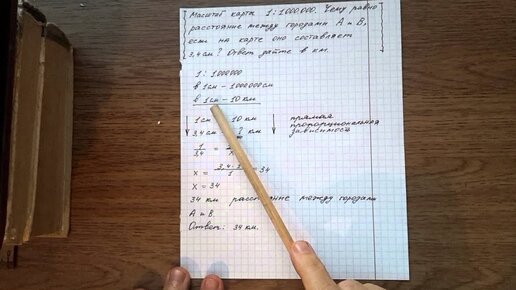 Масштаб карты 1:1.000.000. Чему равно
расстояние между городами А и В,
если на карте оно составляет
3,4 см? Ответ дайте в км.
1 : 1000000
в 1см – 1000000см
в 1см – 10 км
1см – 10 км
3,4 см – ? км
прямая
пропорциональная
зависимость
1/3,4 =
x = 3,4 · /1 = 34
x = 34
34 км расстояние между городами
А и В.
Ответ: 34 км.